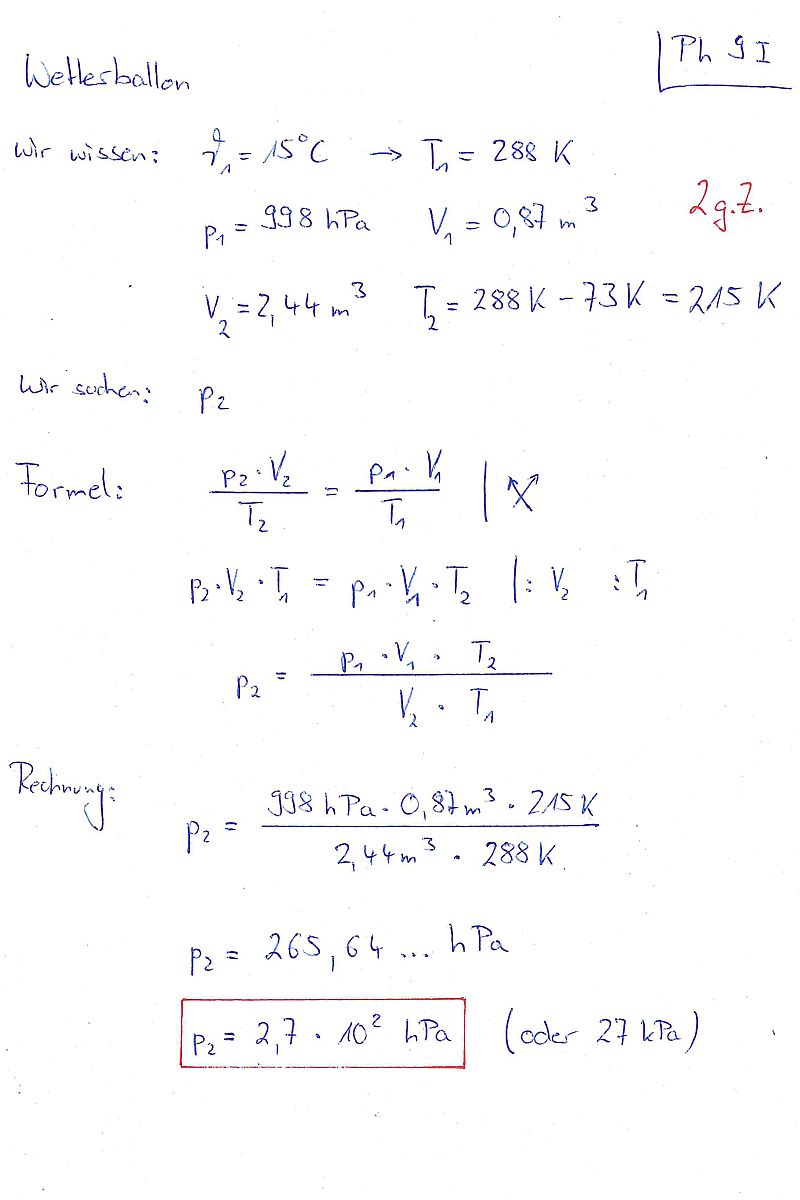 Ph 9 I
Wetterballon
Wir wissen: ϑ₁ = 15°C → T₁ = 288 K
p₁ = 998 hPa V₁ = 0,87 m³
2 g.Z.
V₂ = 2,44 m³ T₂ = 288 K − 73 K = 215 K
Wir suchen: p₂
Formel: (p₂ · V₂) / T₂ = (p₁ · V₁) / T₁ |
p₂ · V₂ · T₁ = p₁ · V₁ · T₂ | : V₂ : T₁
p₂ = (p₁ · V₁ · T₂) / (V₂ · T₁)
Rechnung: p₂ = (998 hPa · 0,87 m³ · 215 K) / (2,44 m³ · 288 K)
p₂ = 265,64 ... hPa
p₂ = 2,7 · 10² hPa (oder 27 kPa)